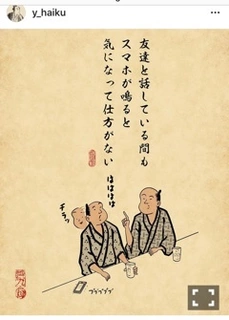 y_haiku
友達と話している間も
スマホが鳴ると
気になって仕方がない
はははは
チラッ
ブブブブブ